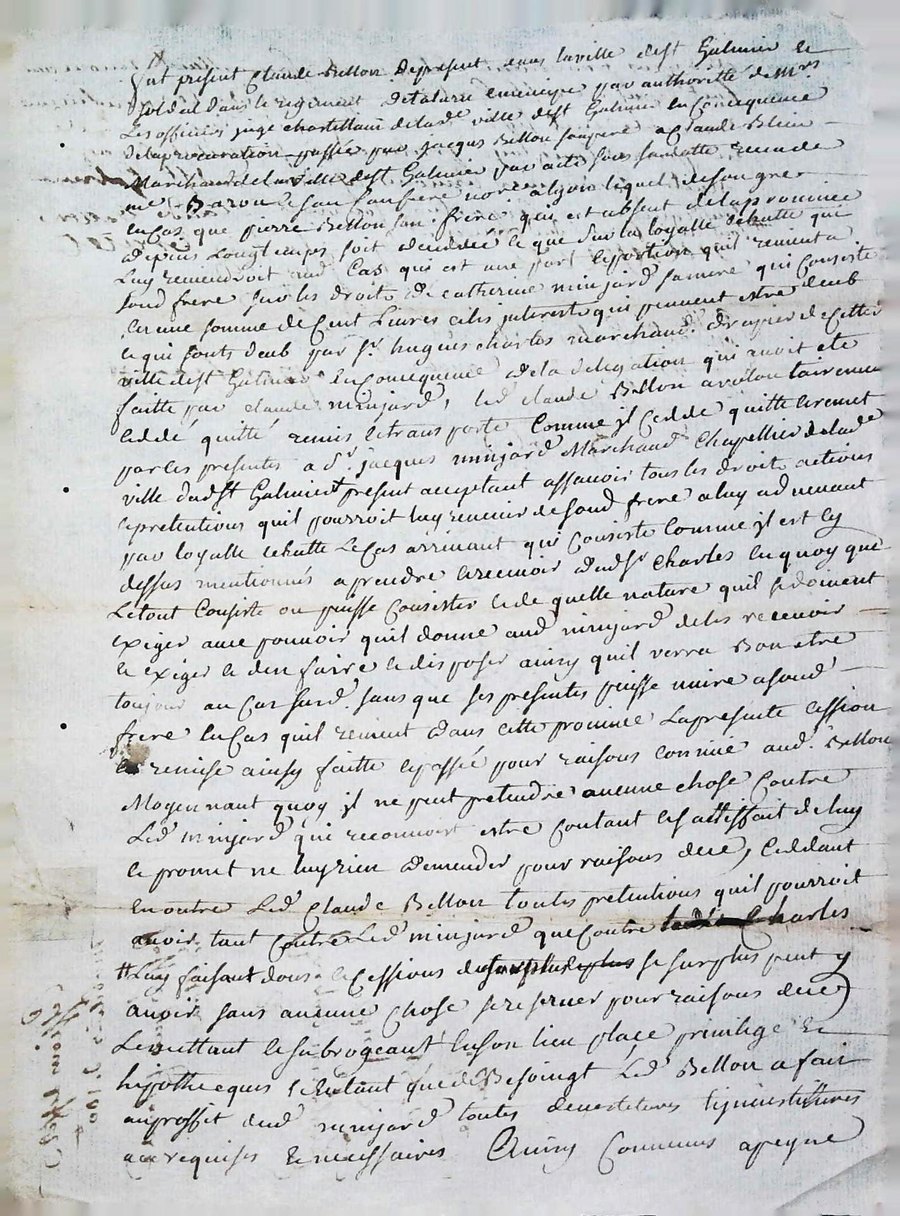 fut present Claude Bellon depresent dans la ville de st Galmier et
soldat dans le regiment detalaru emencipé par authoritté de Mrs
Les officiers juge chastellain delade ville dest Galmier en Consequence
delaprocuration passée par jacques Bellon sonpere a Claude
Marchand de la ville dest Galmier par acte sous recu de
me Baron a lyon lequel desongre
encas que pierre Bellon son frere qui est absent delaprovince
depuis Longtemps soit deceddé ce que sur la loyalle echutte que
Luy reviendroit aud Cas qui est une part et portion quil reviendra
soud frere sur les droits de catherine minjard sa mere qui Consiste
en une somme de Cent Livres et les interests qui peuvent estre deub
et qui sonts deub par sr. hugues charles marchand drapier de cette
ville dest Galmier en Consequence de la delegation qui avoit ete
faitte par claude minjard, led claude Bellon a
ceddé quitté remis et transporté Comme jl cedde quitte et remet
par ces presentes a sr. jacques minjard Marchand Chapellier delade
ville dudst Galmier present acceptant assavoir tous les droits actions
et pretentions quil pourroit luy revenir de soud frere a luy advenant
par loyalle echutte le Cas arrivant qui Consiste Comme jl est cy
dessus mentionnés a prendre et recevoir dudsr Charles en quoy que
Le tout Consiste ou puisse Consister et de quelle nature quil se doivent
exiger avec pouvoir quil donne aud minjard deles recevoir
et exiger et den faire et disposer ainsy quil verra Bon etre
toujour au Cas surd. sans que ses presentes puisse nuire a soud
frere en Cas quil revient dans cette province La presente cession
et remise ainsy faitte et passée pour raisons aud. Bellon
Moyennant quoy jl ne peut pretendre aucune chose Contre
Led minjard qui reconnoit estre Contant et sattisfait de luy
et promet ne luy rien demender pour raisons dece, Ceddant
en outre Led Claude Bellon toutes pretentions quil pourroit
avoir tant Contre Led minjard que Contre Charles
Luy faisant dons et Cessions du se surplus peut y
avoir sans aucune Chose se reserver pour raisons dece
Le mettant et subrogeant en son lieu place privilege et
hipotheques et de Besoingt Led Bellon a fait
auproffit dud minjard toutes devestitures et jnvestitures
requises et necessaires Ainsy Convenus a peyne